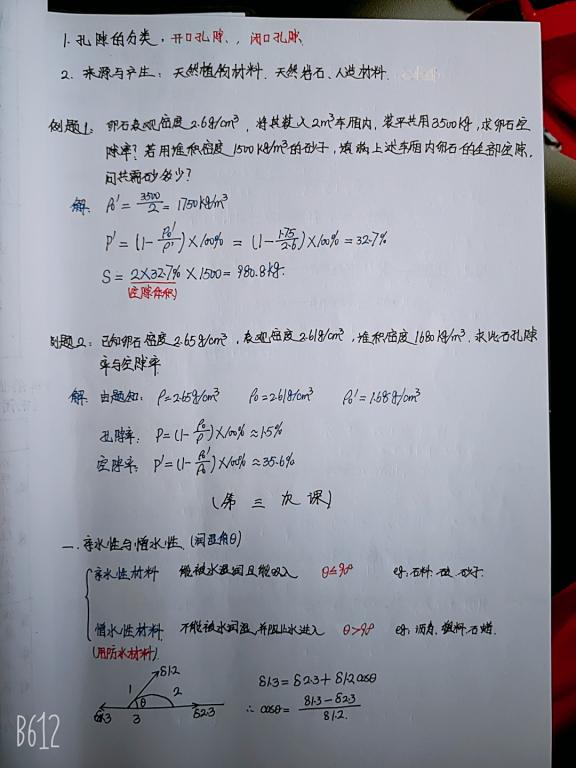 1. 孔隙的分类：开口孔隙、闭口孔隙
2. 来源与产生：天然植物材料、天然岩石、人造材料
例题1：卵石表观密度2.6g/cm³，将其装入2m³车厢内，装平共用3500kg，求卵石空
隙率？若用堆积密度1500kg/m³的砂子，填满上述车厢内卵石的全部空隙，
问共需砂多少？
解：ρ₀' = 3500/2 = 1750kg/m³
P' = (1 - ρ₀'/ρ') × 100% = (1 - 1.75/2.6) × 100% = 32.7%
S = 2×32.7% × 1500 = 980.8kg.
(空隙体积)
例题2：已知卵石密度2.65g/cm³，表观密度2.61g/cm³，堆积密度1680kg/m³，求此石孔隙
率与空隙率
解：由题知：ρ=2.65g/cm³ ρ₀=2.61g/cm³ ρ₀'=1.68g/cm³
孔隙率：P=(1-ρ₀/ρ)×100% ≈1.5%
空隙率：P'=(1-ρ₀'/ρ₀)×100% ≈35.6%
(第三次课)
一、亲水性与憎水性 (润湿角θ)
亲水性材料 能被水湿润且能吸入 θ≤90° eg：石料、砂子.
憎水性材料 不能被水润湿，并阻止水进入 θ>90° eg：沥青、塑料、石蜡.
(用防水材料)
δ1.2
1 θ 2
δ1.3 3 δ2.3
δ1.3 = δ2.3 + δ1.2cosθ
∴ cosθ = (δ1.3 - δ2.3)/δ1.2.
B612